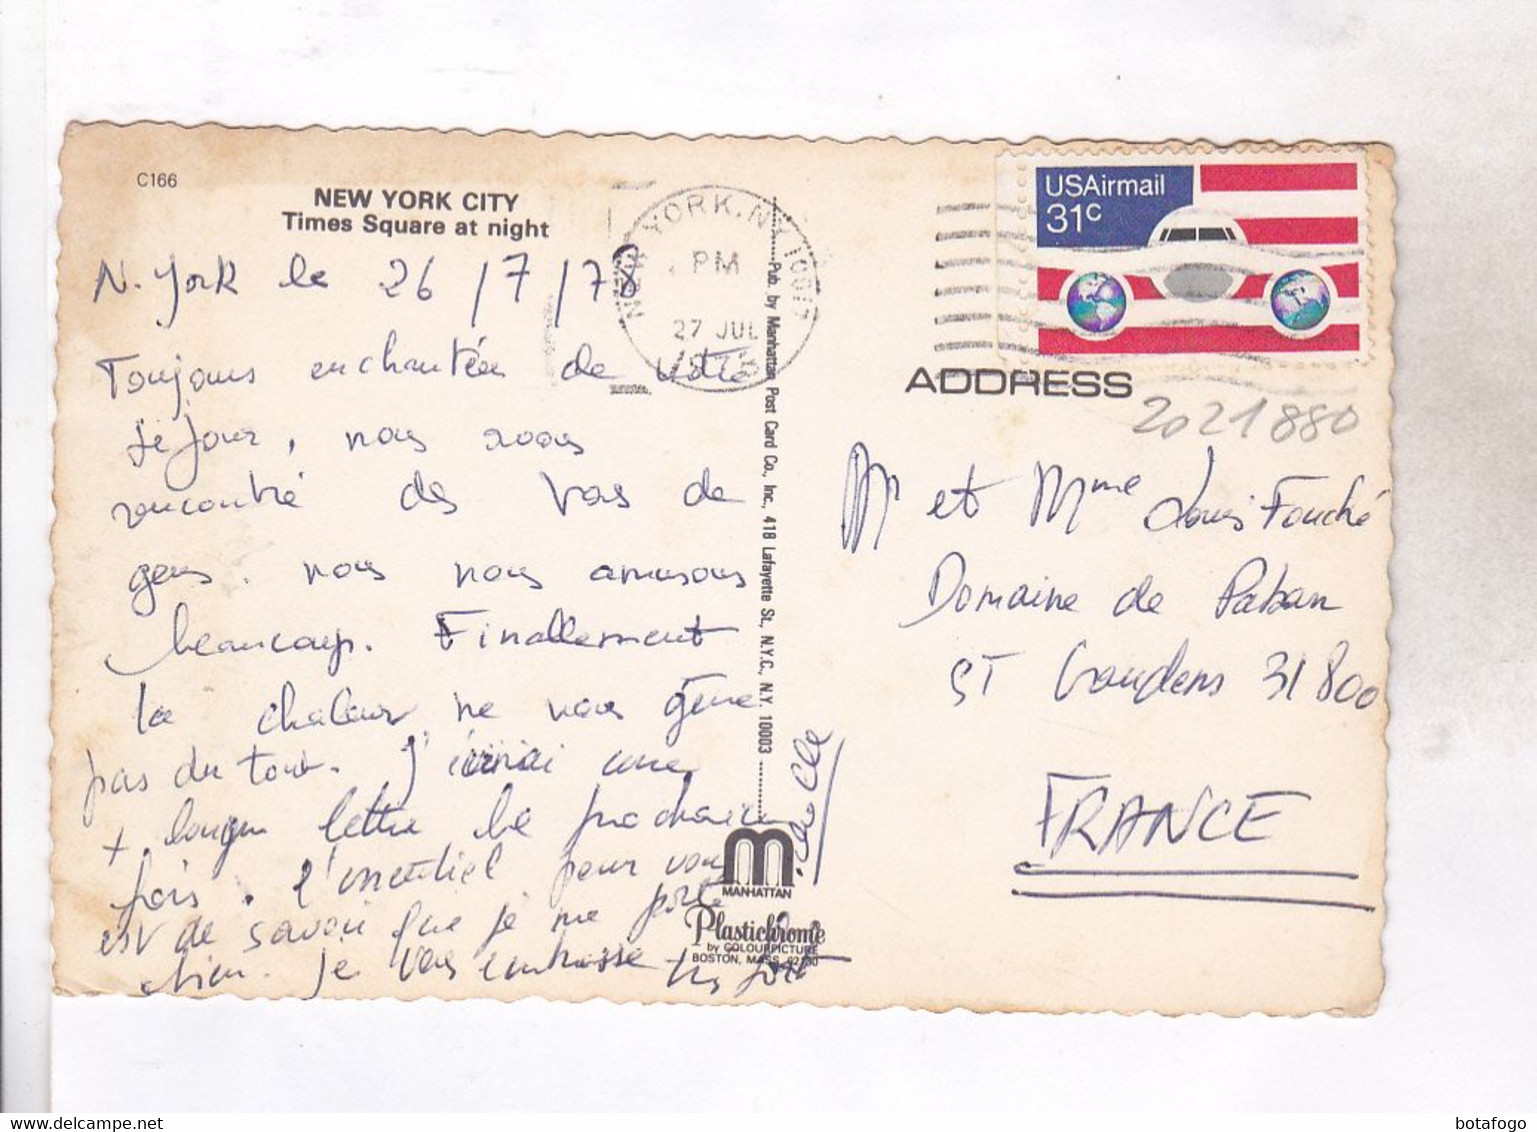 C166
NEW YORK CITY
Times Square at night
N. York le 26/7/78
Toujours enchantées de votre
séjour, nous avons
rencontré des tas de
gens. nous nous amusons
beaucoup. Finallement
la chaleur ne nous gène
pas du tout. J'écrirai une
+ longue lettre la prochaine
fois. L'essentiel pour vous
est de savoir que je me porte
bien. Je vous embrasse très fort
NEW YORK, N.Y. 100
PM
27 JUL
Pub. by Manhattan Post Card Co., Inc., 418 Lafayette St., N.Y.C., N.Y. 10003
MANHATTAN
Plastichrome
by COLOURPICTURE
BOSTON, MASS. 02130
USAirmail
31c
ADDRESS
2021880
M et Mme Louis Fouché
Domaine de Paban
ST Gaudens 31800
FRANCE
botafogo